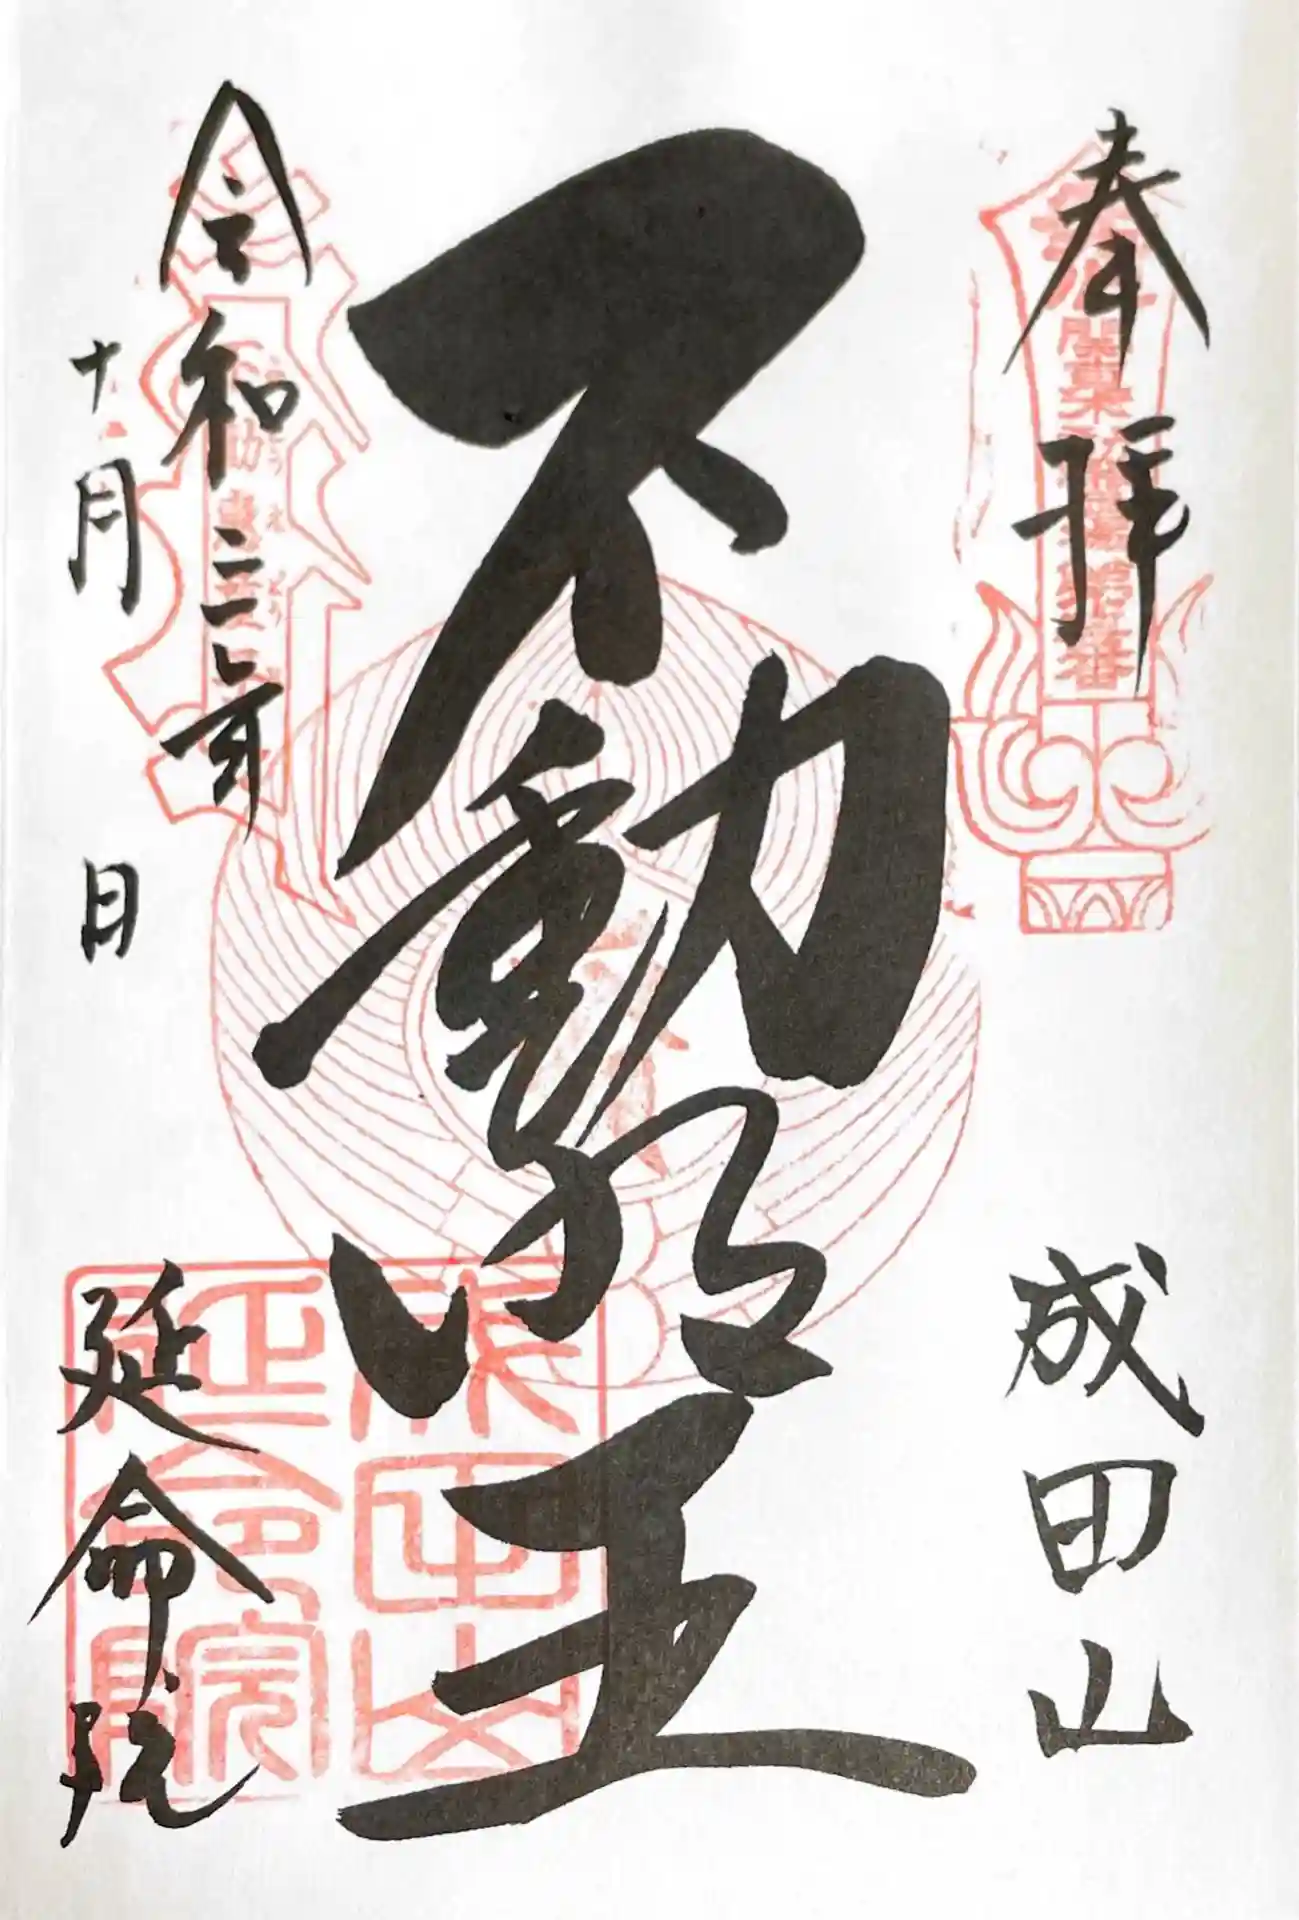 奉拝
成田山
不動明王
令和三年
十月 日
延命院
成田山
延命院